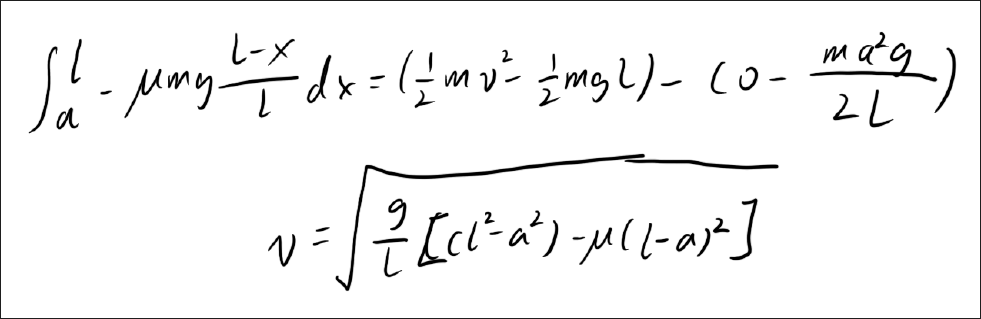 ∫_a^l - μmg \frac{l-x}{l} dx = (\frac{1}{2}mv² - \frac{1}{2}mgl) - (0 - \frac{ma²g}{2L})
v = \sqrt{\frac{g}{l}[(l²-a²)-μ(l-a)²]}